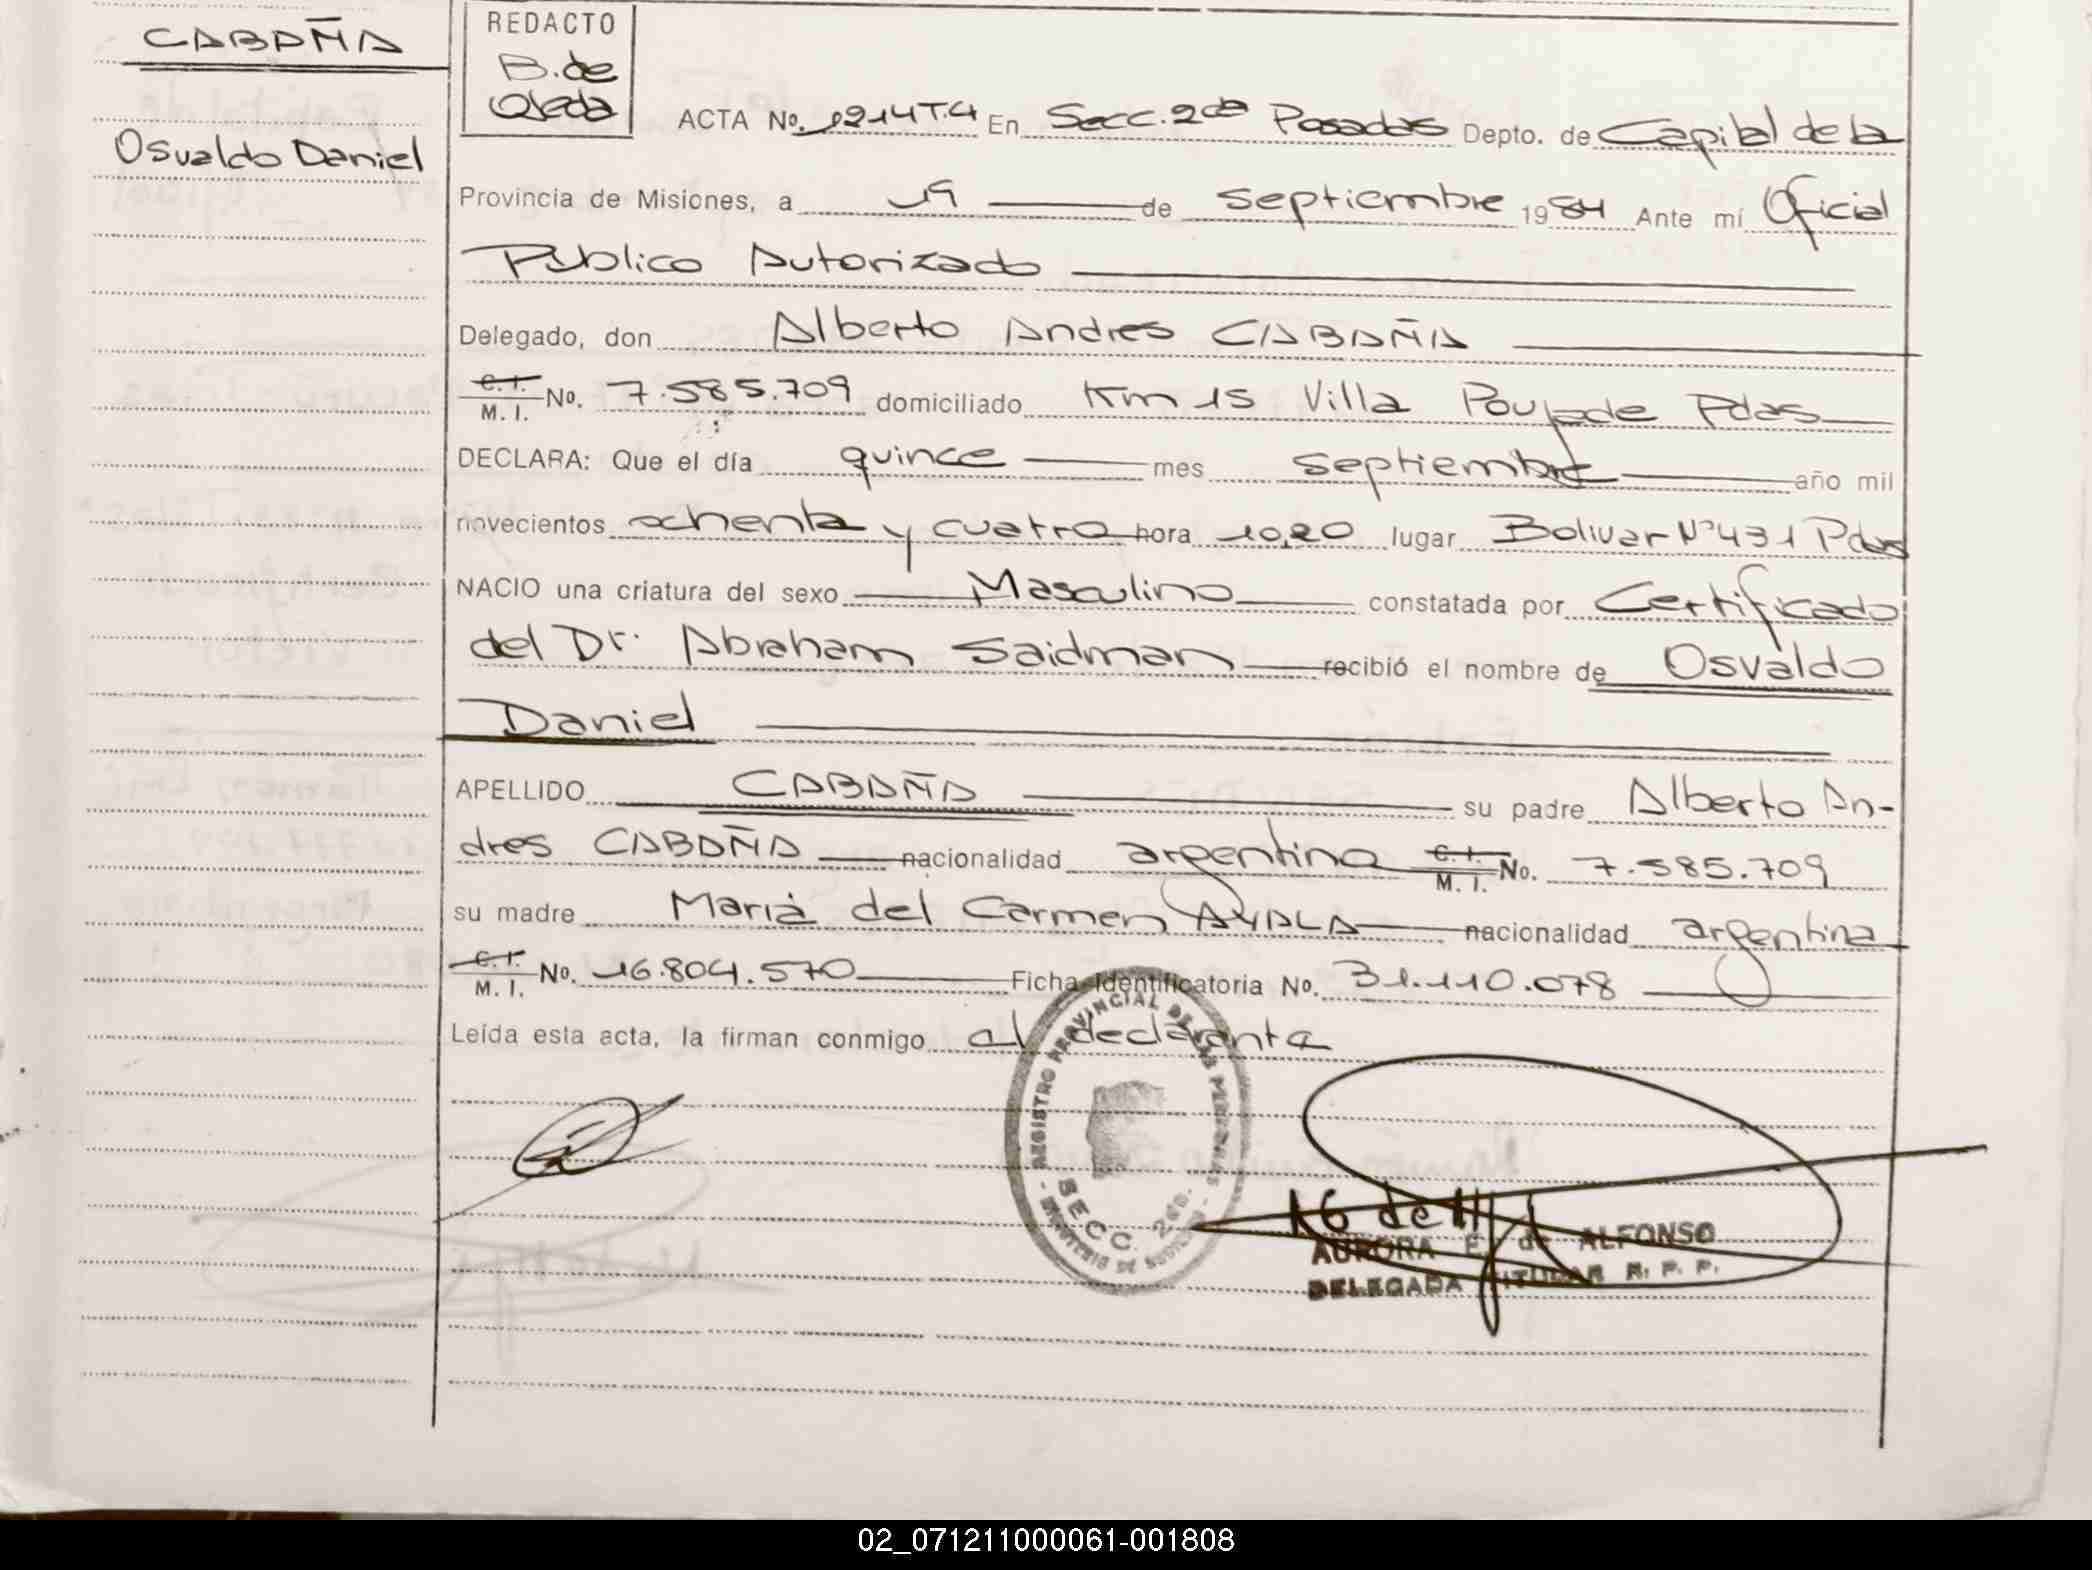 CABAÑA
Osvaldo Daniel
REDACTO
B. de
Ojeda
ACTA No. 1214 T.4 En Secc. 2da Posadas Depto. de Capital de la
Provincia de Misiones, a 19 de septiembre 1984 Ante mí Oficial
Publico Autorizado
Delegado, don Alberto Andres CABAÑA
C.I. M. I. No. 7.585.709 domiciliado Km 15 Villa Poujade Pdas
DECLARA: Que el día quince mes septiembre año mil
novecientos ochenta y cuatro hora 10,20 lugar Bolivar Nº 431 Pdas
NACIO una criatura del sexo Masculino constatada por Certificado
del Dr. Abraham Saidman recibió el nombre de Osvaldo
Daniel
APELLIDO CABAÑA su padre Alberto An-
dres CABAÑA nacionalidad argentina C.I. M. I. No. 7.585.709
su madre Maria del Carmen AYALA nacionalidad argentina
C.I. M. I. No. 16.804.570 Ficha Identificatoria No. 31.110.078
Leída esta acta, la firman conmigo el declaranta
REGISTRO PROVINCIAL DE LAS PERSONAS
SECC. 2da.
AURORA E. de ALFONSO
DELEGADA TITULAR R. P. P.
02_071211000061-001808